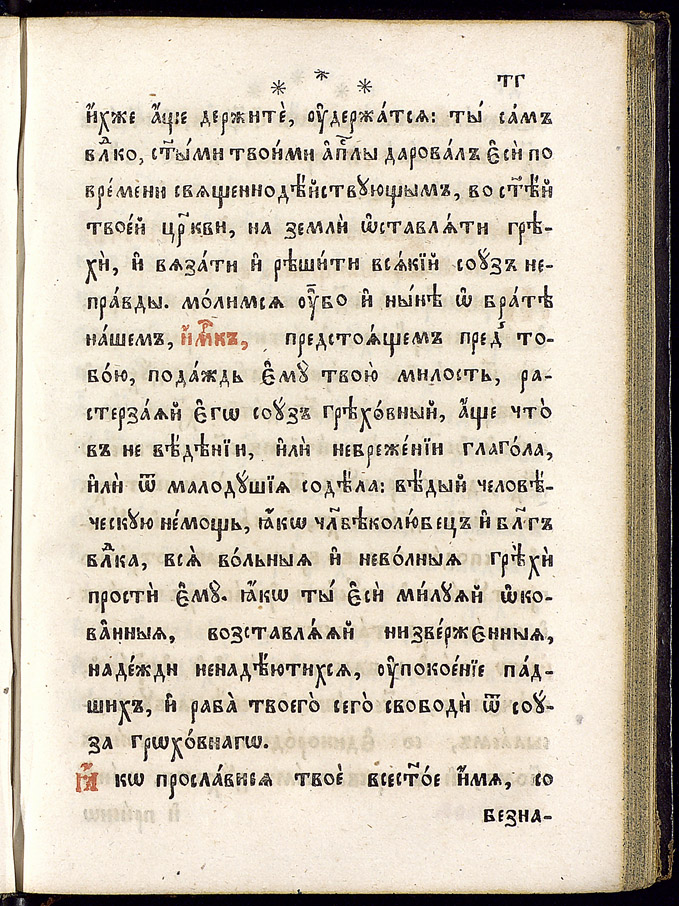 * * * тг
и҆́хже а҆́ще держитѐ, ᲂу҆держа́тсѧ: ты́ са́мъ
влⷣко, ст҃ы́ми твои́ми а҆пⷭ҇лы дарова́лъ є҆сѝ по
вре́мени свѧщеннодѣ́йствꙋющымъ, во ст҃ѣ́й
твое́й цр҃кви, на землѝ ѡ҆ставлѧ́ти грѣ-
хѝ, и҆ вѧза́ти и҆ рѣши́ти всѧ́кїй соу́зъ не-
пра́вды. мо́лимсѧ ᲂу҆̀бо и҆ ны́нѣ ѡ҆ бра́тѣ
на́шемъ, и҆́мⷬ҇къ, предстоѧ́щемъ пред̾ то-
бо́ю, пода́ждь є҆мꙋ̀ твою̀ ми́лость, ра-
стерза́ѧй є҆гѡ̀ соу́зъ грѣхо́вный, а҆́ще что̀
въ не вѣ́дѣнїи, и҆лѝ небреже́нїи глаго́ла,
и҆лѝ ѿ малодꙋ́шїѧ содѣ́ла: вѣ́дый человѣ́-
ческꙋю не́мощь, ꙗ҆́кѡ чл҃вѣколю́бецъ и҆ бл҃гъ
влⷣка, всѧ̑ во́льныѧ и҆ нево́лныѧ грѣхѝ
простѝ є҆мꙋ̀. ꙗ҆́кѡ ты́ є҆сѝ ми́лꙋѧй ѡ҆ко-
ва̑нныѧ, возставлѧ́ѧй низве́рженныѧ,
наде́жди ненадѣ́ютихсѧ, ᲂу҆покое́нїе па́д-
шихъ, и҆ раба̀ твоего̀ сего̀ свободѝ ѿ соу́-
за грѡхо́внагѡ.
Ꙗ҆́кѡ просла́висѧ твоѐ всест҃о́е и҆́мѧ, со
безна-